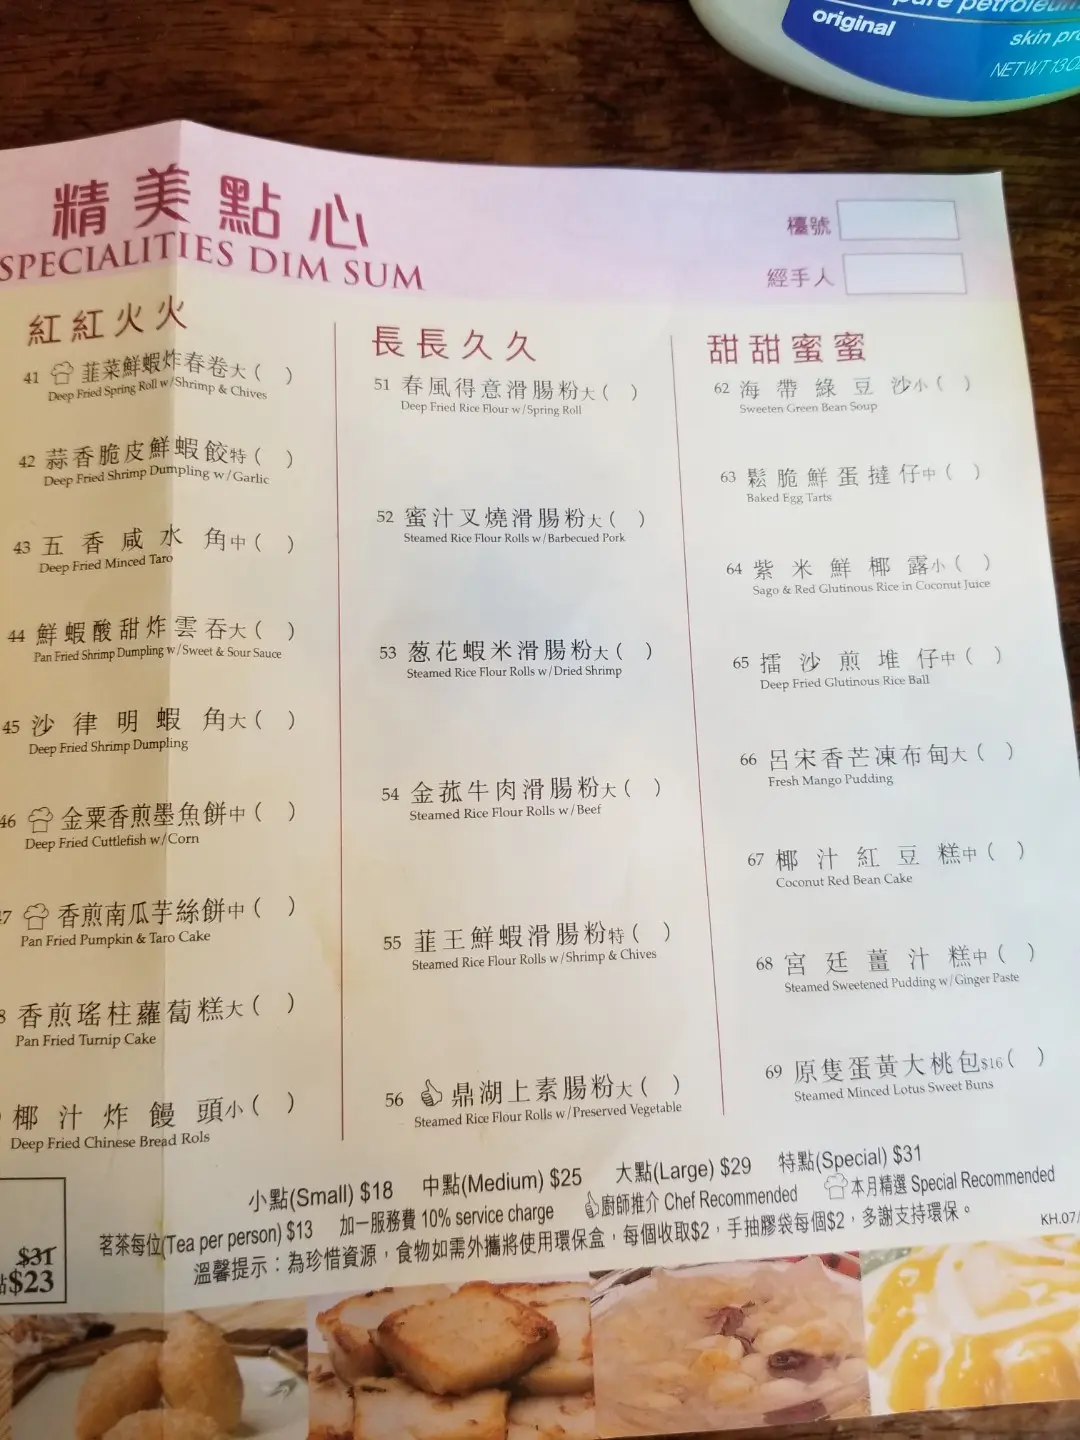 pure petroleum
original
skin pro
NET WT 13 OZ
精美點心
SPECIALITIES DIM SUM
檯號
經手人
紅紅火火
41 韮菜鮮蝦炸春卷大 ( )
Deep Fried Spring Roll w/Shrimp & Chives
42 蒜香脆皮鮮蝦餃特 ( )
Deep Fried Shrimp Dumpling w/Garlic
43 五香咸水角中 ( )
Deep Fried Minced Taro
44 鮮蝦酸甜炸雲吞大 ( )
Pan Fried Shrimp Dumpling w/Sweet & Sour Sauce
45 沙律明蝦角大 ( )
Deep Fried Shrimp Dumpling
46 金粟香煎墨魚餅中 ( )
Deep Fried Cuttlefish w/Corn
47 香煎南瓜芋絲餅中 ( )
Pan Fried Pumpkin & Taro Cake
8 香煎瑤柱蘿蔔糕大 ( )
Pan Fried Turnip Cake
椰汁炸饅頭小 ( )
Deep Fried Chinese Bread Rols
長長久久
51 春風得意滑腸粉大 ( )
Deep Fried Rice Flour w/Spring Roll
52 蜜汁叉燒滑腸粉大 ( )
Steamed Rice Flour Rolls w/Barbecued Pork
53 葱花蝦米滑腸粉大 ( )
Steamed Rice Flour Rolls w/Dried Shrimp
54 金菰牛肉滑腸粉大 ( )
Steamed Rice Flour Rolls w/Beef
55 韮王鮮蝦滑腸粉特 ( )
Steamed Rice Flour Rolls w/Shrimp & Chives
56 鼎湖上素腸粉大 ( )
Steamed Rice Flour Rolls w/Preserved Vegetable
甜甜蜜蜜
62 海帶綠豆沙小 ( )
Sweeten Green Bean Soup
63 鬆脆鮮蛋撻仔中 ( )
Baked Egg Tarts
64 紫米鮮椰露小 ( )
Sago & Red Glutinous Rice in Coconut Juice
65 擂沙煎堆仔中 ( )
Deep Fried Glutinous Rice Ball
66 呂宋香芒凍布甸大 ( )
Fresh Mango Pudding
67 椰汁紅豆糕中 ( )
Coconut Red Bean Cake
68 宮廷薑汁糕中 ( )
Steamed Sweetened Pudding w/Ginger Paste
69 原隻蛋黃大桃包$16 ( )
Steamed Minced Lotus Sweet Buns
小點(Small) $18 中點(Medium) $25 大點(Large) $29 特點(Special) $31
茗茶每位(Tea per person) $13 加一服務費 10% service charge 廚師推介 Chef Recommended 本月精選 Special Recommended
溫馨提示：為珍惜資源，食物如需外攜將使用環保盒，每個收取$2，手抽膠袋每個$2，多謝支持環保。
KH.07/
$31
點$23